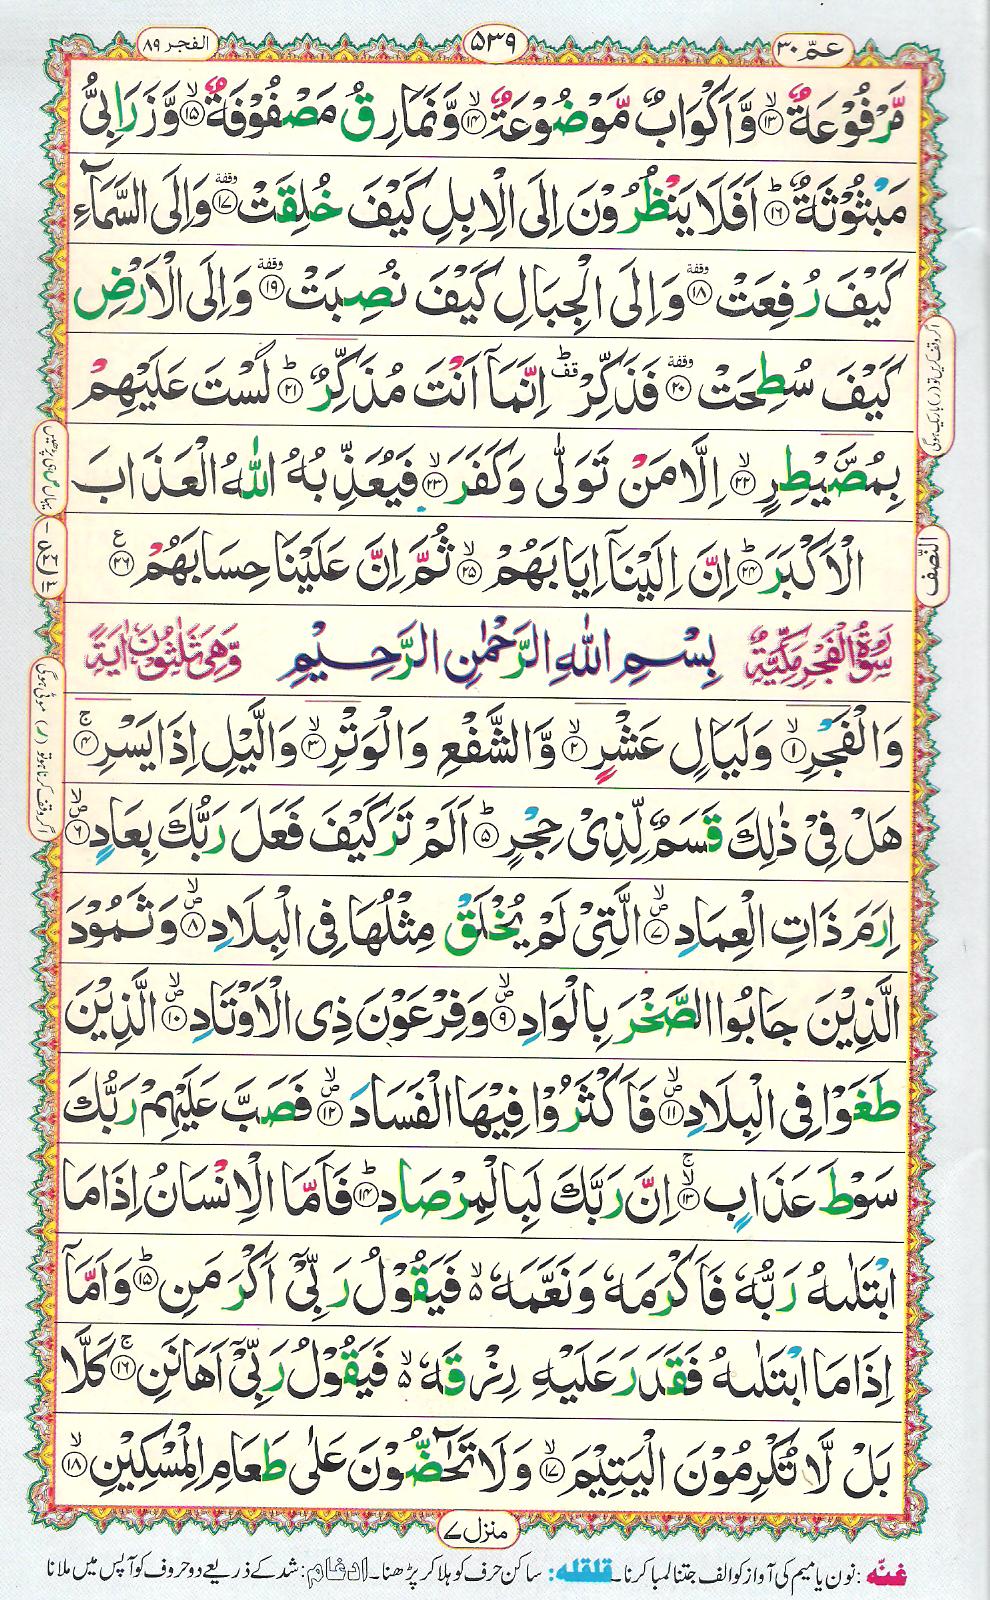 عمّ ۳۰
۵۳۹
الفجر ۸۹
مَّرْفُوْعَةٌ ۙ﴿۱۳﴾ وَّاَكْوَابٌ مَّوْضُوْعَةٌ ۙ﴿۱۴﴾ وَّنَمَارِقُ مَصْفُوْفَةٌ ۙ﴿۱۵﴾ وَّزَرَابِیُّ
مَبْثُوْثَةٌ ؕ﴿۱۶﴾ اَفَلَا یَنْظُرُوْنَ اِلَى الْاِبِلِ كَیْفَ خُلِقَتْ وقفة﴿۱۷﴾ وَاِلَى السَّمَآءِ
كَیْفَ رُفِعَتْ وقفة﴿۱۸﴾ وَاِلَى الْجِبَالِ كَیْفَ نُصِبَتْ وقفة﴿۱۹﴾ وَاِلَى الْاَرْضِ
كَیْفَ سُطِحَتْ وقفة﴿۲۰﴾ فَذَكِّرْ قف اِنَّمَاۤ اَنْتَ مُذَكِّرٌ ؕ﴿۲۱﴾ لَسْتَ عَلَیْهِمْ
بِمُصَۜیْطِرٍ ۙ﴿۲۲﴾ اِلَّا مَنْ تَوَلّٰى وَكَفَرَ ۙ﴿۲۳﴾ فَیُعَذِّبُهُ اللّٰهُ الْعَذَابَ
الْاَكْبَرَ ؕ﴿۲۴﴾ اِنَّ اِلَیْنَاۤ اِیَابَهُمْ ۙ﴿۲۵﴾ ثُمَّ اِنَّ عَلَیْنَا حِسَابَهُمْ ﴿۲۶﴾ ع
سُوْرَةُ الْفَجْرِ مَكِّیَّةٌ بِسْمِ اللّٰهِ الرَّحْمٰنِ الرَّحِیْمِ وَّهِیَ ثَلٰثُوْنَ اٰیَةً
وَالْفَجْرِ ۙ﴿۱﴾ وَلَیَالٍ عَشْرٍ ۙ﴿۲﴾ وَّالشَّفْعِ وَالْوَتْرِ ۙ﴿۳﴾ وَالَّیْلِ اِذَا یَسْرِ ۚ﴿۴﴾
هَلْ فِیْ ذٰلِكَ قَسَمٌ لِّذِیْ حِجْرٍ ؕ﴿۵﴾ اَلَمْ تَرَ كَیْفَ فَعَلَ رَبُّكَ بِعَادٍ ۪ۙ﴿۶﴾
اِرَمَ ذَاتِ الْعِمَادِ ۪ۙ﴿۷﴾ الَّتِیْ لَمْ یُخْلَقْ مِثْلُهَا فِی الْبِلَادِ ۪ۙ﴿۸﴾ وَثَمُوْدَ
الَّذِیْنَ جَابُوا الصَّخْرَ بِالْوَادِ ۪ۙ﴿۹﴾ وَفِرْعَوْنَ ذِی الْاَوْتَادِ ۪ۙ﴿۱۰﴾ الَّذِیْنَ
طَغَوْا فِی الْبِلَادِ ۪ۙ﴿۱۱﴾ فَاَكْثَرُوْا فِیْهَا الْفَسَادَ ۪ۙ﴿۱۲﴾ فَصَبَّ عَلَیْهِمْ رَبُّكَ
سَوْطَ عَذَابٍ ۚۙ﴿۱۳﴾ اِنَّ رَبَّكَ لَبِالْمِرْصَادِ ؕ﴿۱۴﴾ فَاَمَّا الْاِنْسَانُ اِذَا مَا
ابْتَلٰىهُ رَبُّهٗ فَاَكْرَمَهٗ وَنَعَّمَهٗ ۙ۬ فَیَقُوْلُ رَبِّیْۤ اَكْرَمَنِ ؕ﴿۱۵﴾ وَاَمَّاۤ
اِذَا مَا ابْتَلٰىهُ فَقَدَرَ عَلَیْهِ رِزْقَهٗ ۙ۬ فَیَقُوْلُ رَبِّیْۤ اَهَانَنِ ۚ﴿۱۶﴾ كَلَّا
بَلْ لَّا تُكْرِمُوْنَ الْیَتِیْمَ ۙ﴿۱۷﴾ وَلَا تَحٰٓضُّوْنَ عَلٰى طَعَامِ الْمِسْكِیْنِ ۙ﴿۱۸﴾
النّصف
منزل ۷
غنّه: نون یا میم کی آواز کو الف جتنا لمبا کرنا۔ قلقله: ساکن حرف کو ہلا کر پڑھنا۔ ادغام: شد کے ذریعے دو حروف کو آپس میں ملانا